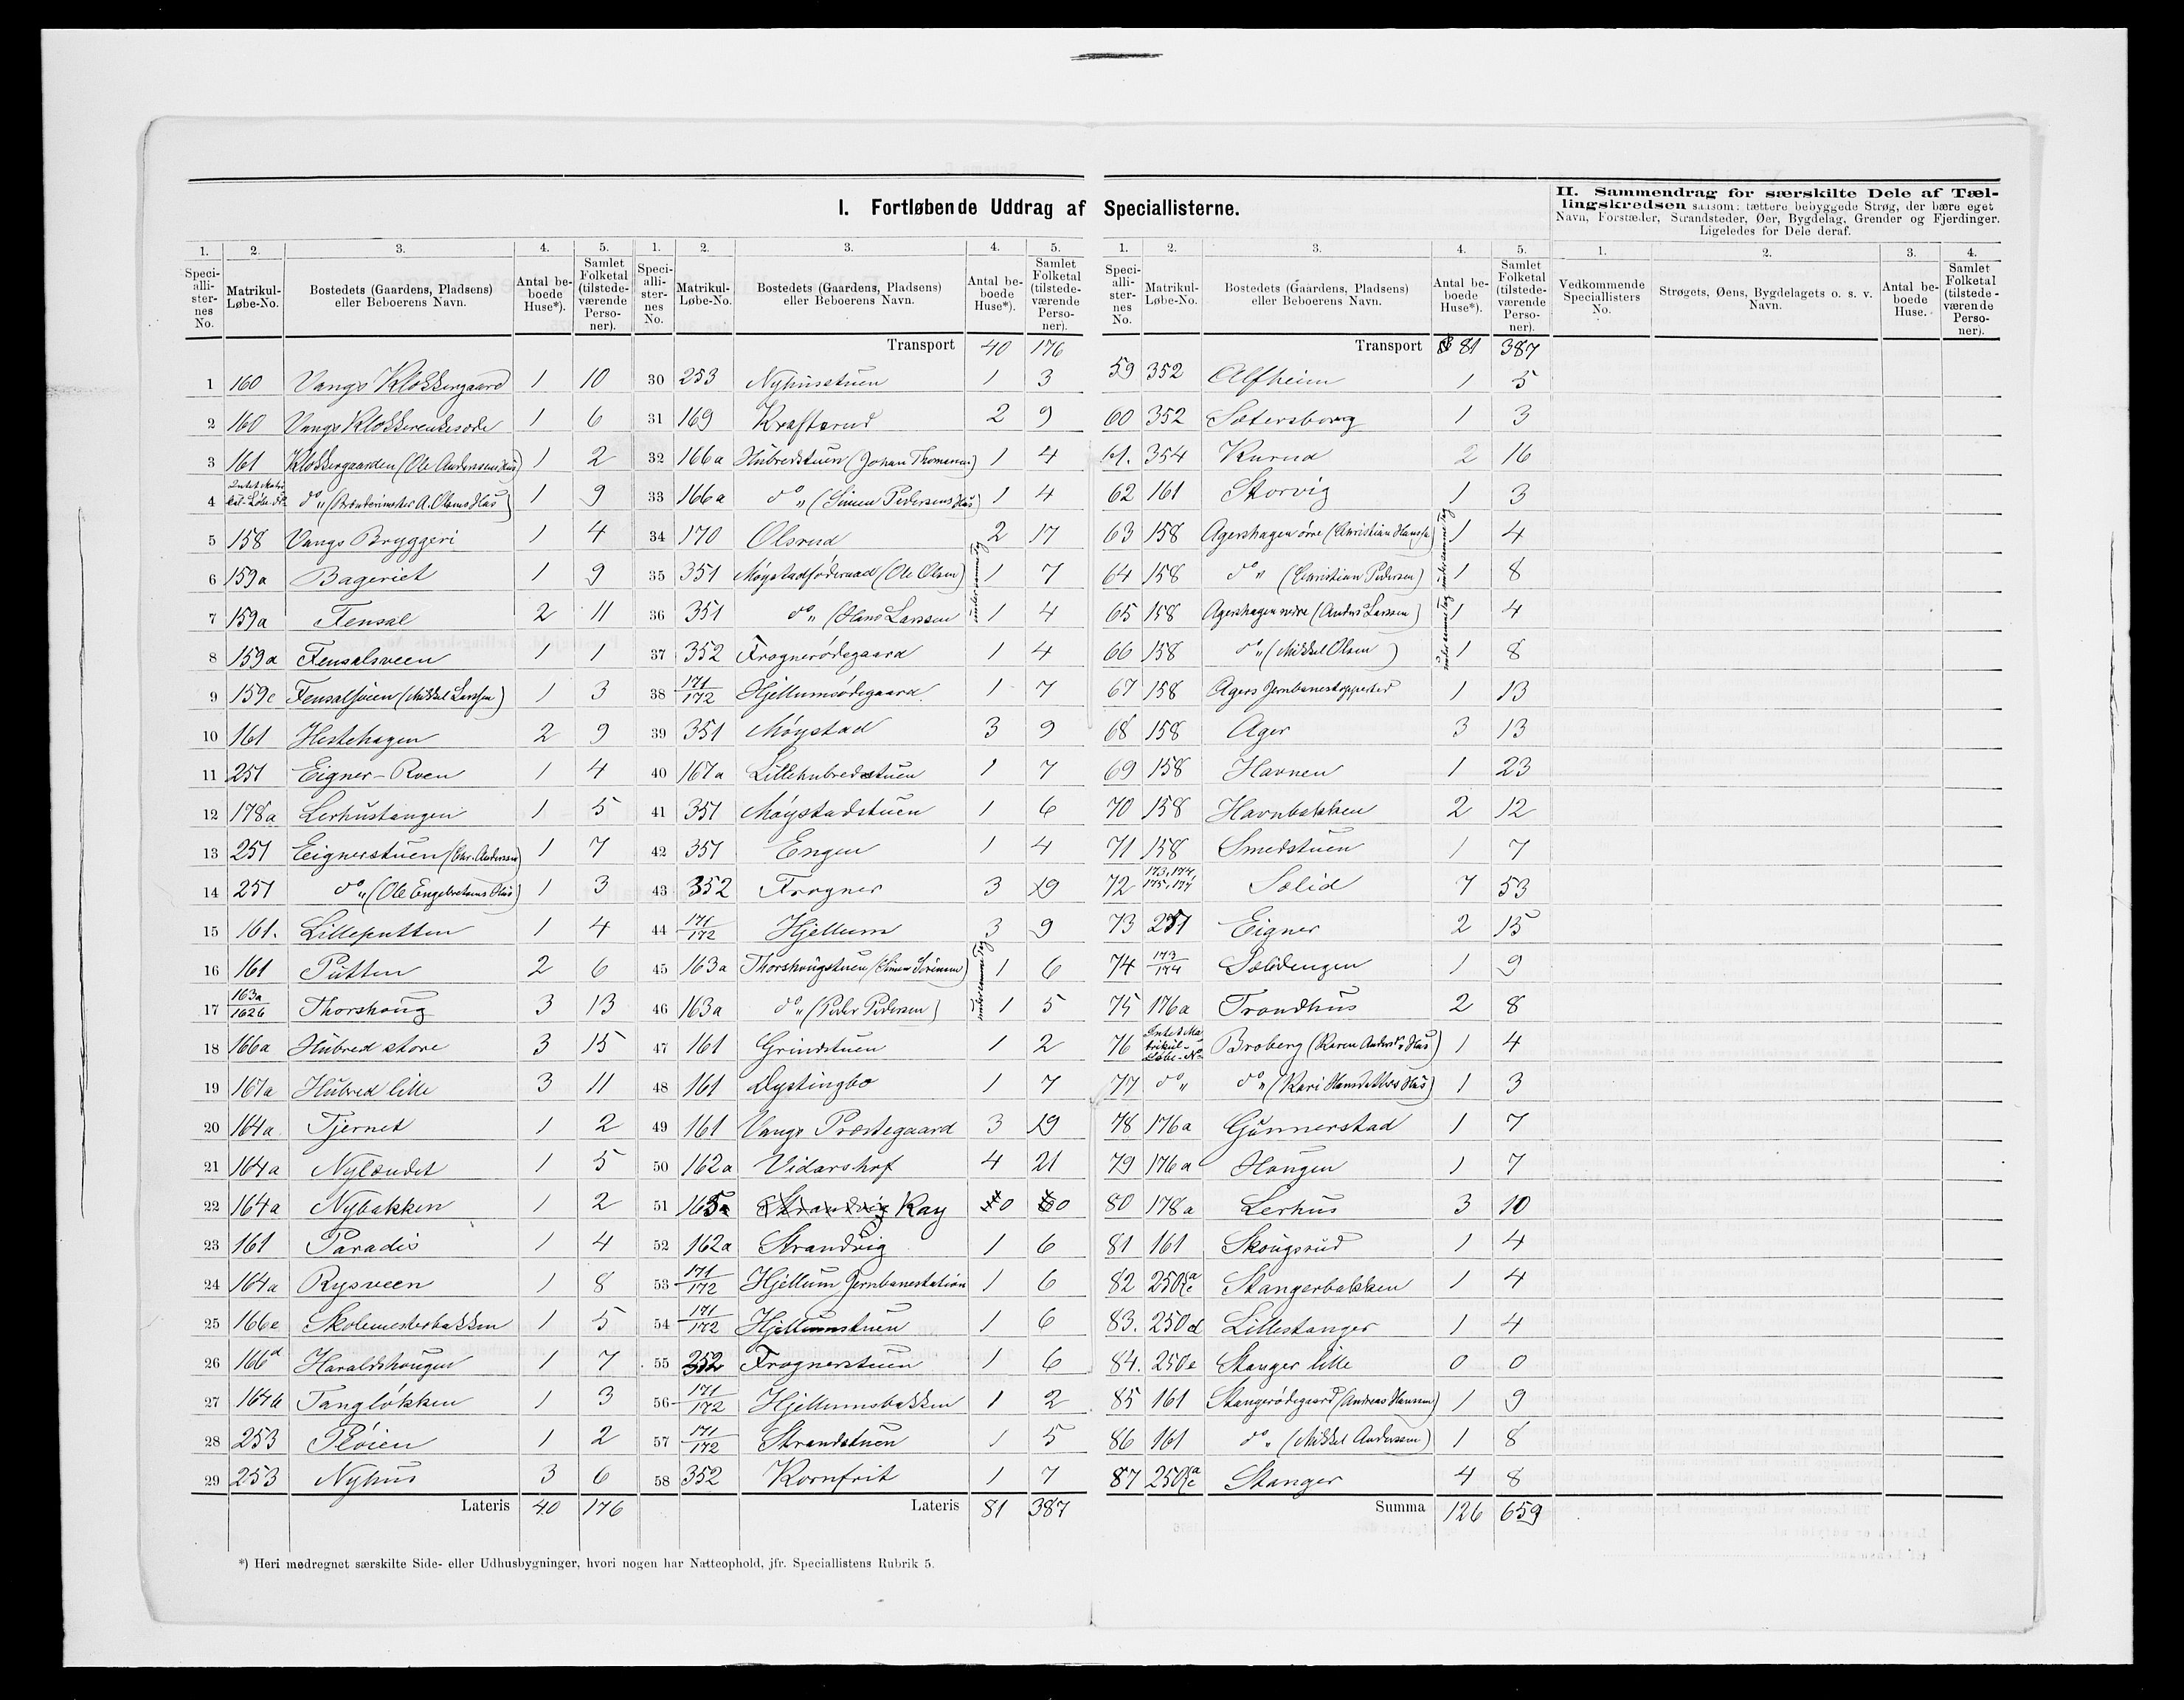 I. Fortløbende Uddrag af Speciallisterne.
II. Sammendrag for særskilte Dele af Tæl-
lingskredsen saasom: tættere bebyggede Strøg, der bære eget
Navn, Forstæder, Strandsteder, Øer, Bygdelag, Grender og Fjerdinger.
Ligeledes for Dele deraf.
1. 2. 3. 4. 5.
Speci-alli-ster-nes No. Matrikul-Løbe-No. Bostedets (Gaardens, Pladsens) eller Beboerens Navn. Antal be-boede Huse*). Samlet Folketal (tilstede-værende Perso-ner).
1 160 Vangs Klokkergaard 1 10
2 160 Vangs Klokkerenkesæde 1 6
3 161 Klokkergaarden (Ole Anderssens Hus) 1 2
4 Intet Matri-kul-Løbe-No do „ (A. Olsens Hus) 1 9
5 158 Vangs Bryggeri 1 4
6 159a Bageriet 1 9
7 159a Fensal 2 11
8 159a Fensalsveen 1 1
9 159c Fensalsveen (Mikkel Larssen) 1 3
10 161 Hestehagen 2 9
11 251 Eigner-Roen 1 4
12 178a Lerhustangen 1 5
13 251 Eignerstuen (Chr. Anderssen) 1 7
14 251 do „ (Ole Engebretsens Hus) 1 3
15 161. Lilleputten 1 4
16 161 Putten 2 6
17 163a/162b Thorshoug 3 13
18 166a Hubred store 3 15
19 167a Hubred lille 3 11
20 164a Tjernet 1 2
21 164a Nylændet 1 5
22 164a Nybakken 1 2
23 161 Paradis 1 4
24 164a Rysveen 1 8
25 166e Skolemesterbakken 1 5
26 166d Haraldshaugen 1 7
27 164b Tangløkken 1 3
28 253 Pløien 1 2
29 253 Nyhus 3 6
Lateris 40 176
1. 2. 3. 4. 5.
Speci-alli-ster-nes No. Matrikul-Løbe-No. Bostedets (Gaardens, Pladsens) eller Beboerens Navn. Antal be-boede Huse*). Samlet Folketal (tilstede-værende Perso-ner).
Transport 40 176
30 253 Nyhusstuen 1 3
31 169 Krafterud 2 9
32 166a Hubredstuen (Johan Thomassen) 1 4
33 166a do „ (Simen Pedersens Hus) 1 4
34 170 Olsrud 2 17
35 351 Møystadføderaad (Ole Olsen) 1 7
under samme Tag
36 351 do „ (Hans Larssen 1 4
37 352 Frognerødegaard 1 4
38 171/172 Hjellumsødegaard 1 7
39 351 Møystad 3 9
40 167a Lillehubredstuen 1 7
41 351 Møystadstuen 1 6
42 351 Engen 1 4
43 352 Frogner 3 19
44 171/172 Hjellum 3 9
45 163a Thorshougstuen (Simen Simensen) 1 6
under samme Tag
46 163a do „ (Peder Pedersen) 1 5
47 161 Grindstuen 1 2
48 161 Dystingbo 1 7
49 161 Vangs Præstegaard 3 19
50 162a Vidarshof 4 21
51 165a Strandvig Kay 0 0
52 162a Strandvig 1 6
53 171/172 Hjellum Jernbanestation 1 6
54 171/172 Hjellumstuen 1 6
55 352 Frognerstuen 1 6
56 171/172 Hjellumsbakken 1 2
57 171/172 Strandstuen 1 5
58 352 Kornfrit 1 7
Lateris 81 387
1. 2. 3. 4. 5.
Speci-alli-ster-nes No. Matrikul-Løbe-No. Bostedets (Gaardens, Pladsens) eller Beboerens Navn. Antal be-boede Huse*). Samlet Folketal (tilstede-værende Perso-ner).
Transport 81 387
59 352 Alfheim 1 5
60 352 Sætersborg 1 3
61. 354 Kurud 2 16
62 161 Storvig 1 3
63 158 Agershagen øvre (Christian Hanss.) 1 4
under samme Tag
64 158 do „ (Christian Pedersen) 1 8
65 158 Agershagen nedre (Anders Larssen) 1 4
under samme Tag
66 158 do „ (Mikkel Olsen) 1 8
67 158 Agers Jernbanestoppested 1 13
68 158 Ager 3 13
69 158 Havnen 1 23
70 158 Havnbakken 2 12
71 158 Smedstuen 1 7
72 173, 174, 175, 177 Sælid 7 53
73 251 Eigner 2 15
74 173/174 Sælidengen 1 9
75 176a Trondhus 2 8
76 Intet Ma-trikul-Løbe-No Broberg (Karen Andersd's Hus) 1 4
77 do „ do „ (Kari Hansdatters Hus) 1 3
78 176a Gunnerstad 1 7
79 176a Haugen 1 7
80 178a Lerhus 3 10
81 161 Skougsrud 1 4
82 250a/c Stangerbakken 1 4
83. 250d Lillestanger 1 4
84. 250e Stanger lille 0 0
85 161 Stangerødegaard (Andreas Hanssen) 1 9
86 161 do „ (Mikkel Anderssen) 1 8
87 250a/c Stanger 4 8
Summa 126 659
1. 2. 3. 4.
Vedkommende Speciallisters No. Strøgets, Øens, Bygdelagets o. s. v. Navn. Antal be-boede Huse. Samlet Folketal (tilstede-værende Perso-ner).
*) Heri medregnet særskilte Side- eller Udhusbygninger, hvori nogen har Natteophold, jfr. Speciallistens Rubrik 5.